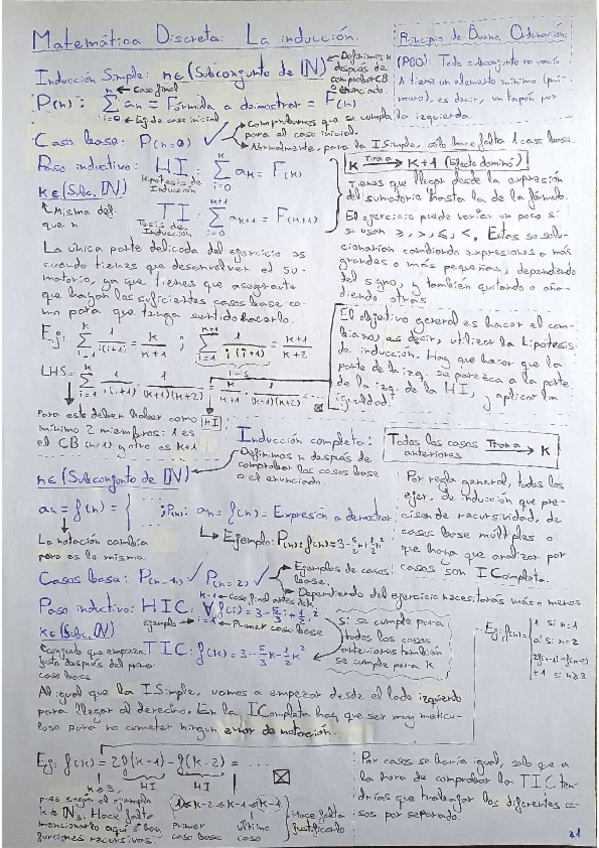 Matemática Discreta: La inducción.
Principio de Buena Ordenación:
(PBO): Todo subconjunto no vacío
tiene un elemento mínimo (pri-
mero), es decir, un tapón por
la izquierda.
Inducción Simple: n∈(Subconjunto de ℕ)
Definimos n
después de
comprobar CB
o enunciado.
Caso final
P(n): Σ an = Fórmula a demostrar = F(n)
i=0 ← Ej. de caso inicial
Comprobamos que se cumpla
para el caso inicial.
Caso base: P(n=0) ✓
Normalmente, para la ISimple, sólo hace falta 1 caso base.
Paso inductivo: HI: Σ ak = F(k)
Hipótesis de
Inducción
k∈(Subc. ℕ)
Misma def.
que n
TI: Σ ak+1 = F(k+1)
Tesis de
Inducción
k Tira a → k+1 (Efecto dominó)
Tienes que llegar desde la expresión
del sumatorio hasta la de la fórmula.
El ejercicio puede variar un poco si
se usan ≥, >, ≤, <. Estas se solu-
cionarían cambiando expresiones a más
grandes o más pequeñas, dependiendo
del signo, y también quitando o aña-
diendo otras.
La única parte delicada del ejercicio es
cuando tienes que desenvolver el su-
matorio, ya que tienes que asegurarte
que hayan los suficientes casos base co-
mo para que tenga sentido hacerlo.
Ej: Σ 1/i(i+1) = k/k+1 ; Σ 1/i(i+1) = k+1/k+2
El objetivo general es hacer el cam-
biazo, es decir, utilizar la hipótesis
de inducción. Hay que hacer que la
parte de la izq. se parezca a la parte
de la izq. de la HI, y aplicar la
igualdad.
Para esto deben haber como
mínimo 2 miembros: 1 es
el CB (n=1) y otro es k+1
HI
Inducción completa:
Todos los casos
anteriores Tiran a → k
n∈(Subconjunto de ℕ)
Definimos n después de
comprobar los casos base
o el enunciado.
Por regla general, todos los
ejer. de inducción que pre-
cisen de recursividad, de
casos base múltiples o
que haya que analizar por
casos son ICompleta.
an = f(n) = { ; P(n): an = f(n) = Expresión a demostrar
La notación cambia
pero es lo mismo.
Casos base: P(n=1) ✓ P(n=2) ✓
Ejemplos de casos
base.
Dependiendo del ejercicio necesitarás más o menos.
Paso inductivo: HIC:
k-1 ← Caso final antes de k
ejemplo → i=1 ← Primer caso base
k∈(Subc. ℕ)
Conjunto que empieza
justo después del primer
caso base
si se cumple para
todos los casos
anteriores también
se cumple para k
Al igual que la ISimple, vamos a empezar desde el lado izquierdo
para llegar al derecho. En la ICompleta hay que ser muy meticu-
loso para no cometer ningún error de notación.
Ej: f(k) = 2f(k-1) - f(k-2) = ...
k≥3,
HI HI
Hace falta
mencionarlo aquí si hay
funciones recursivas.
1≤k-2≤k-1≤k-1
Primer
caso base
Último
caso
Hace falta
justificarlo
Por casos se haría igual, solo que a
la hora de comprobar la TIC ten-
drías que trabajar los diferentes ca-
sos por separado.
21